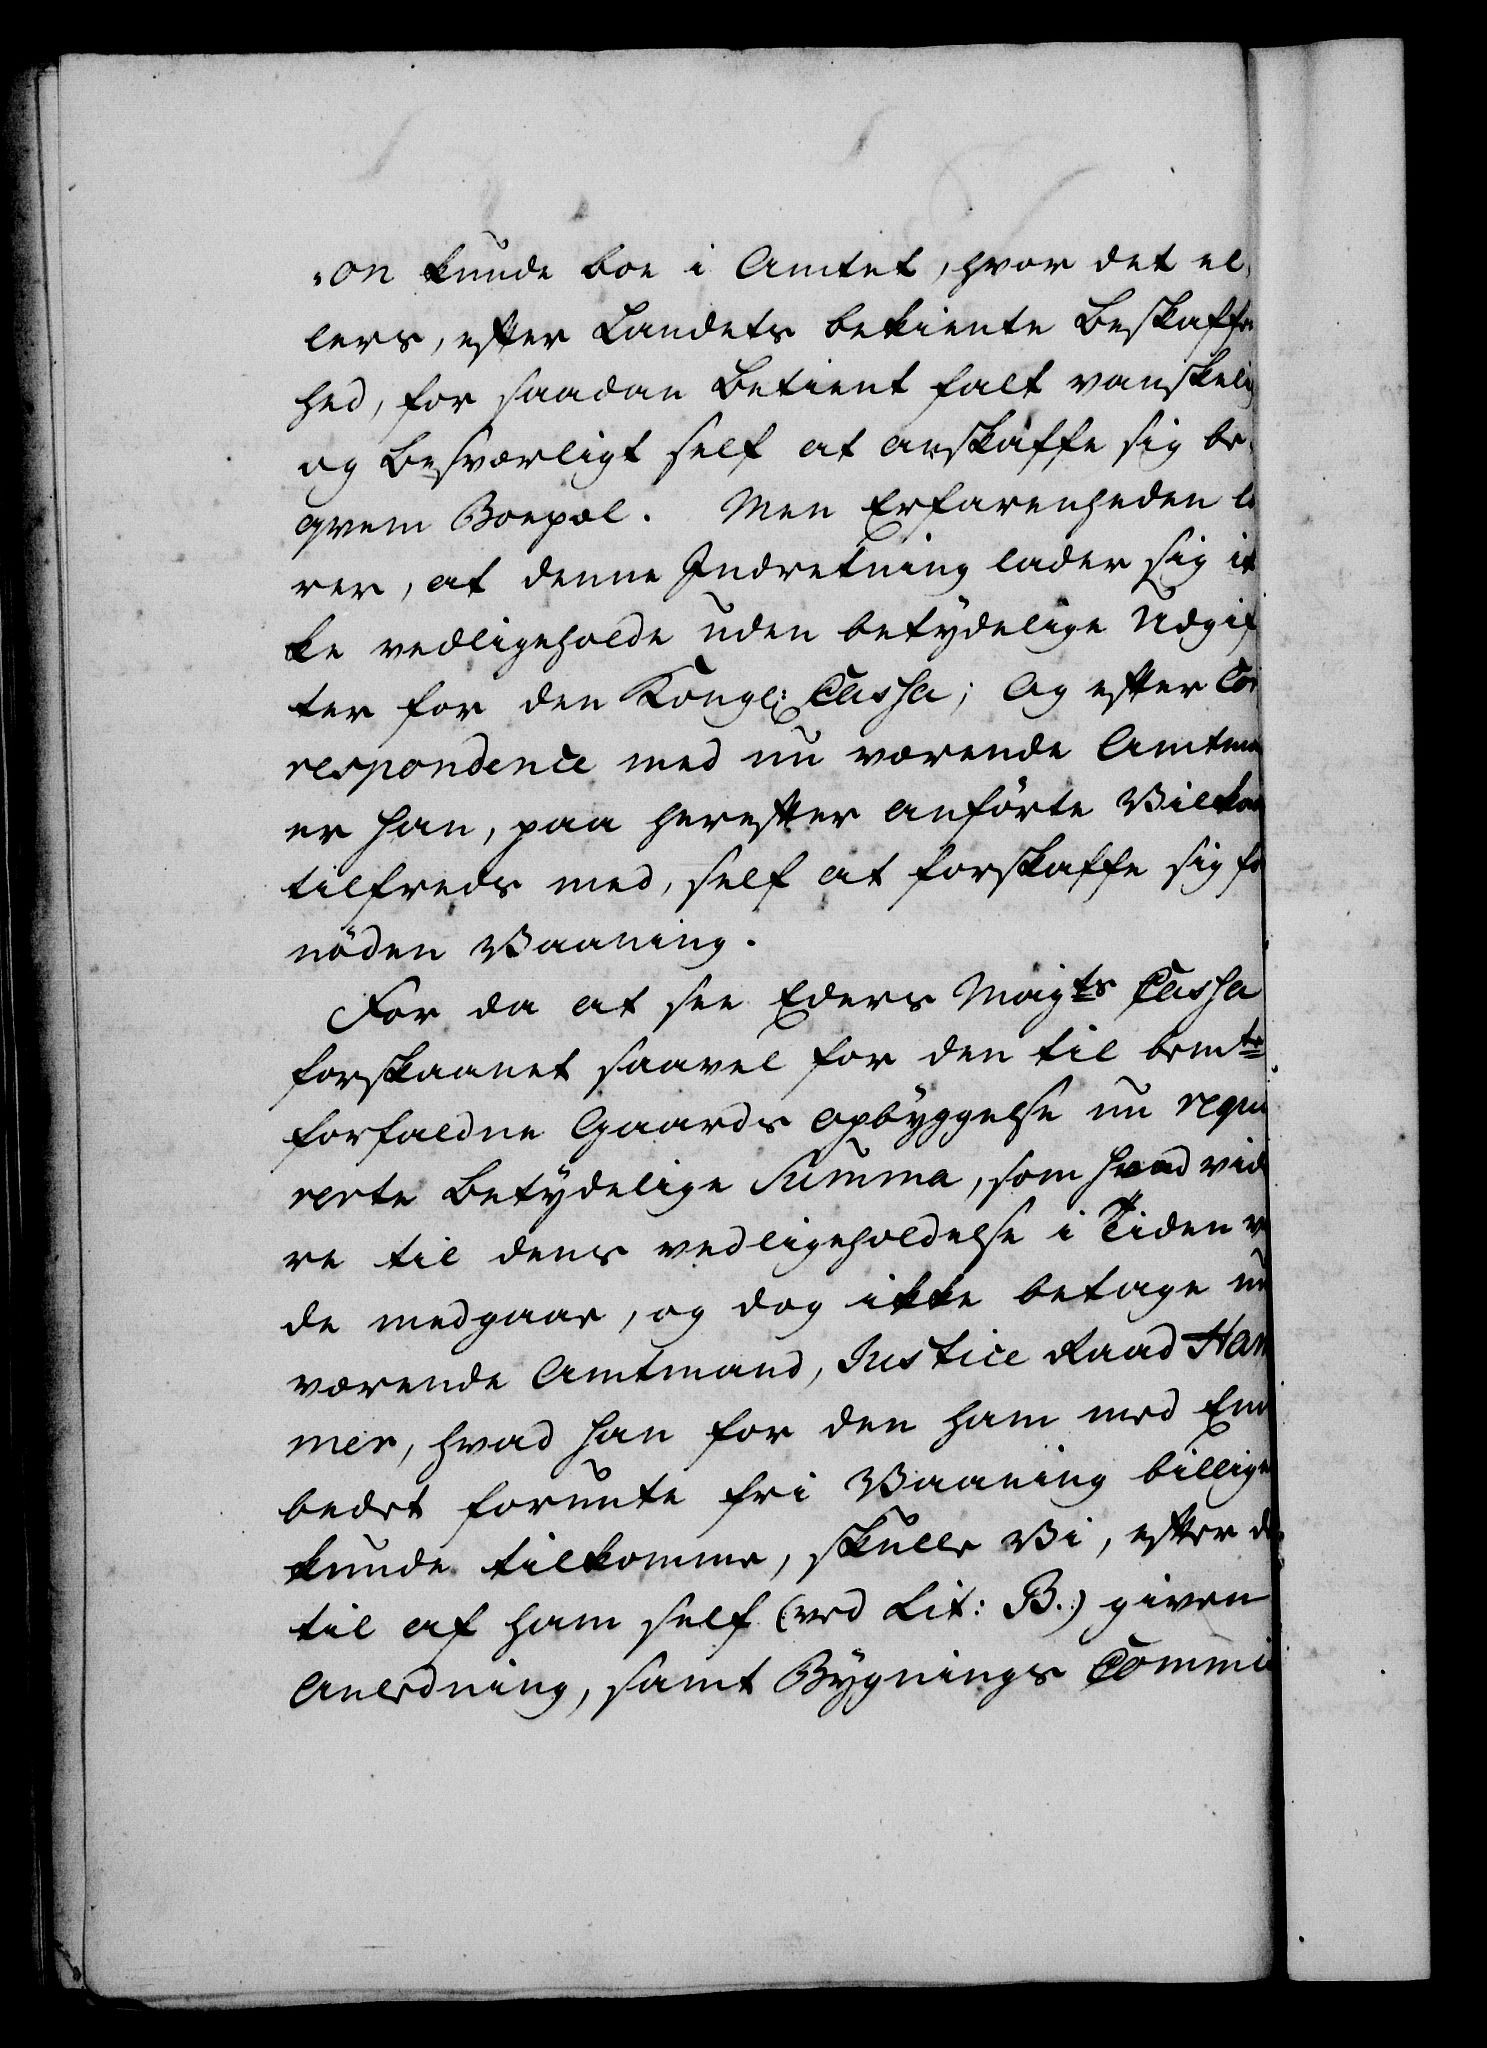 "on kunde boe i Amtet, hvor det el,
lers, efter Landets bekiente Beskaffen
hed, for saadan Betient falt vanskelig
og Besværligt self at anskaffe sig be,
qvem Boepæl. Men Erfarenheden læ
rer, at denne Indretning lader sig ik
ke vedligeholde uden betydelige Udgif
ter for den Kongl: Cassa; Og efter Cor
respondence med nu værende Amtman
er han, paa herefter anførte Vilkaar
tilfreds med, self at forskaffe sig for
nöden Vaaning.
For da at see Eders Maigts Cassa
forskaanet saavel for den til bemte
forfaldne Gaards Opbyggelse nu requi
rerte Betydelige Summa, som hvad vide
re til dens vedligeholdelse i Tiden vil
de medgaae, og dog ikke betage nu
værende Amtmand, Justice Raad Ham
mer, hvad han for den ham med Em
bedet forunte fri Vaaning billigen
kunde tilkomme, skulle Vi, efter der
til af ham self (ved Lit: B.) given
Anledning, samt Bygnings Commis